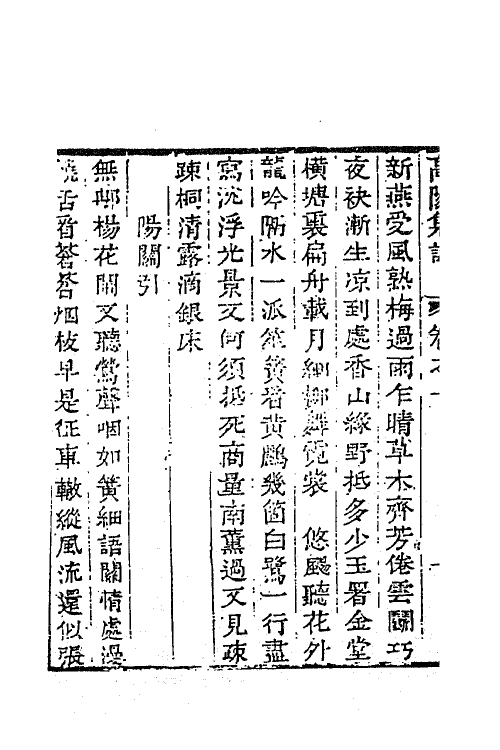 高陽集詩
新燕受風熟梅過雨乍晴草木齊芳倦雲閣巧
夜袂漸生凉到處香山綠野抵多少玉署金堂
橫塘裏扁舟載月細柳舞霓裳 悠颺聽花外
龍吟隔水一派笙簧看黄鸝幾箇白鷺一行盡
寫沈浮光景又何須抵死商量南薰過又見疎
疎桐清露滴銀床
陽關引
無那楊花鬧又聽鶯聲咽如簧細語關情處漫
饒舌看蒼蒼烟枝早是征車轍縱風流還似張